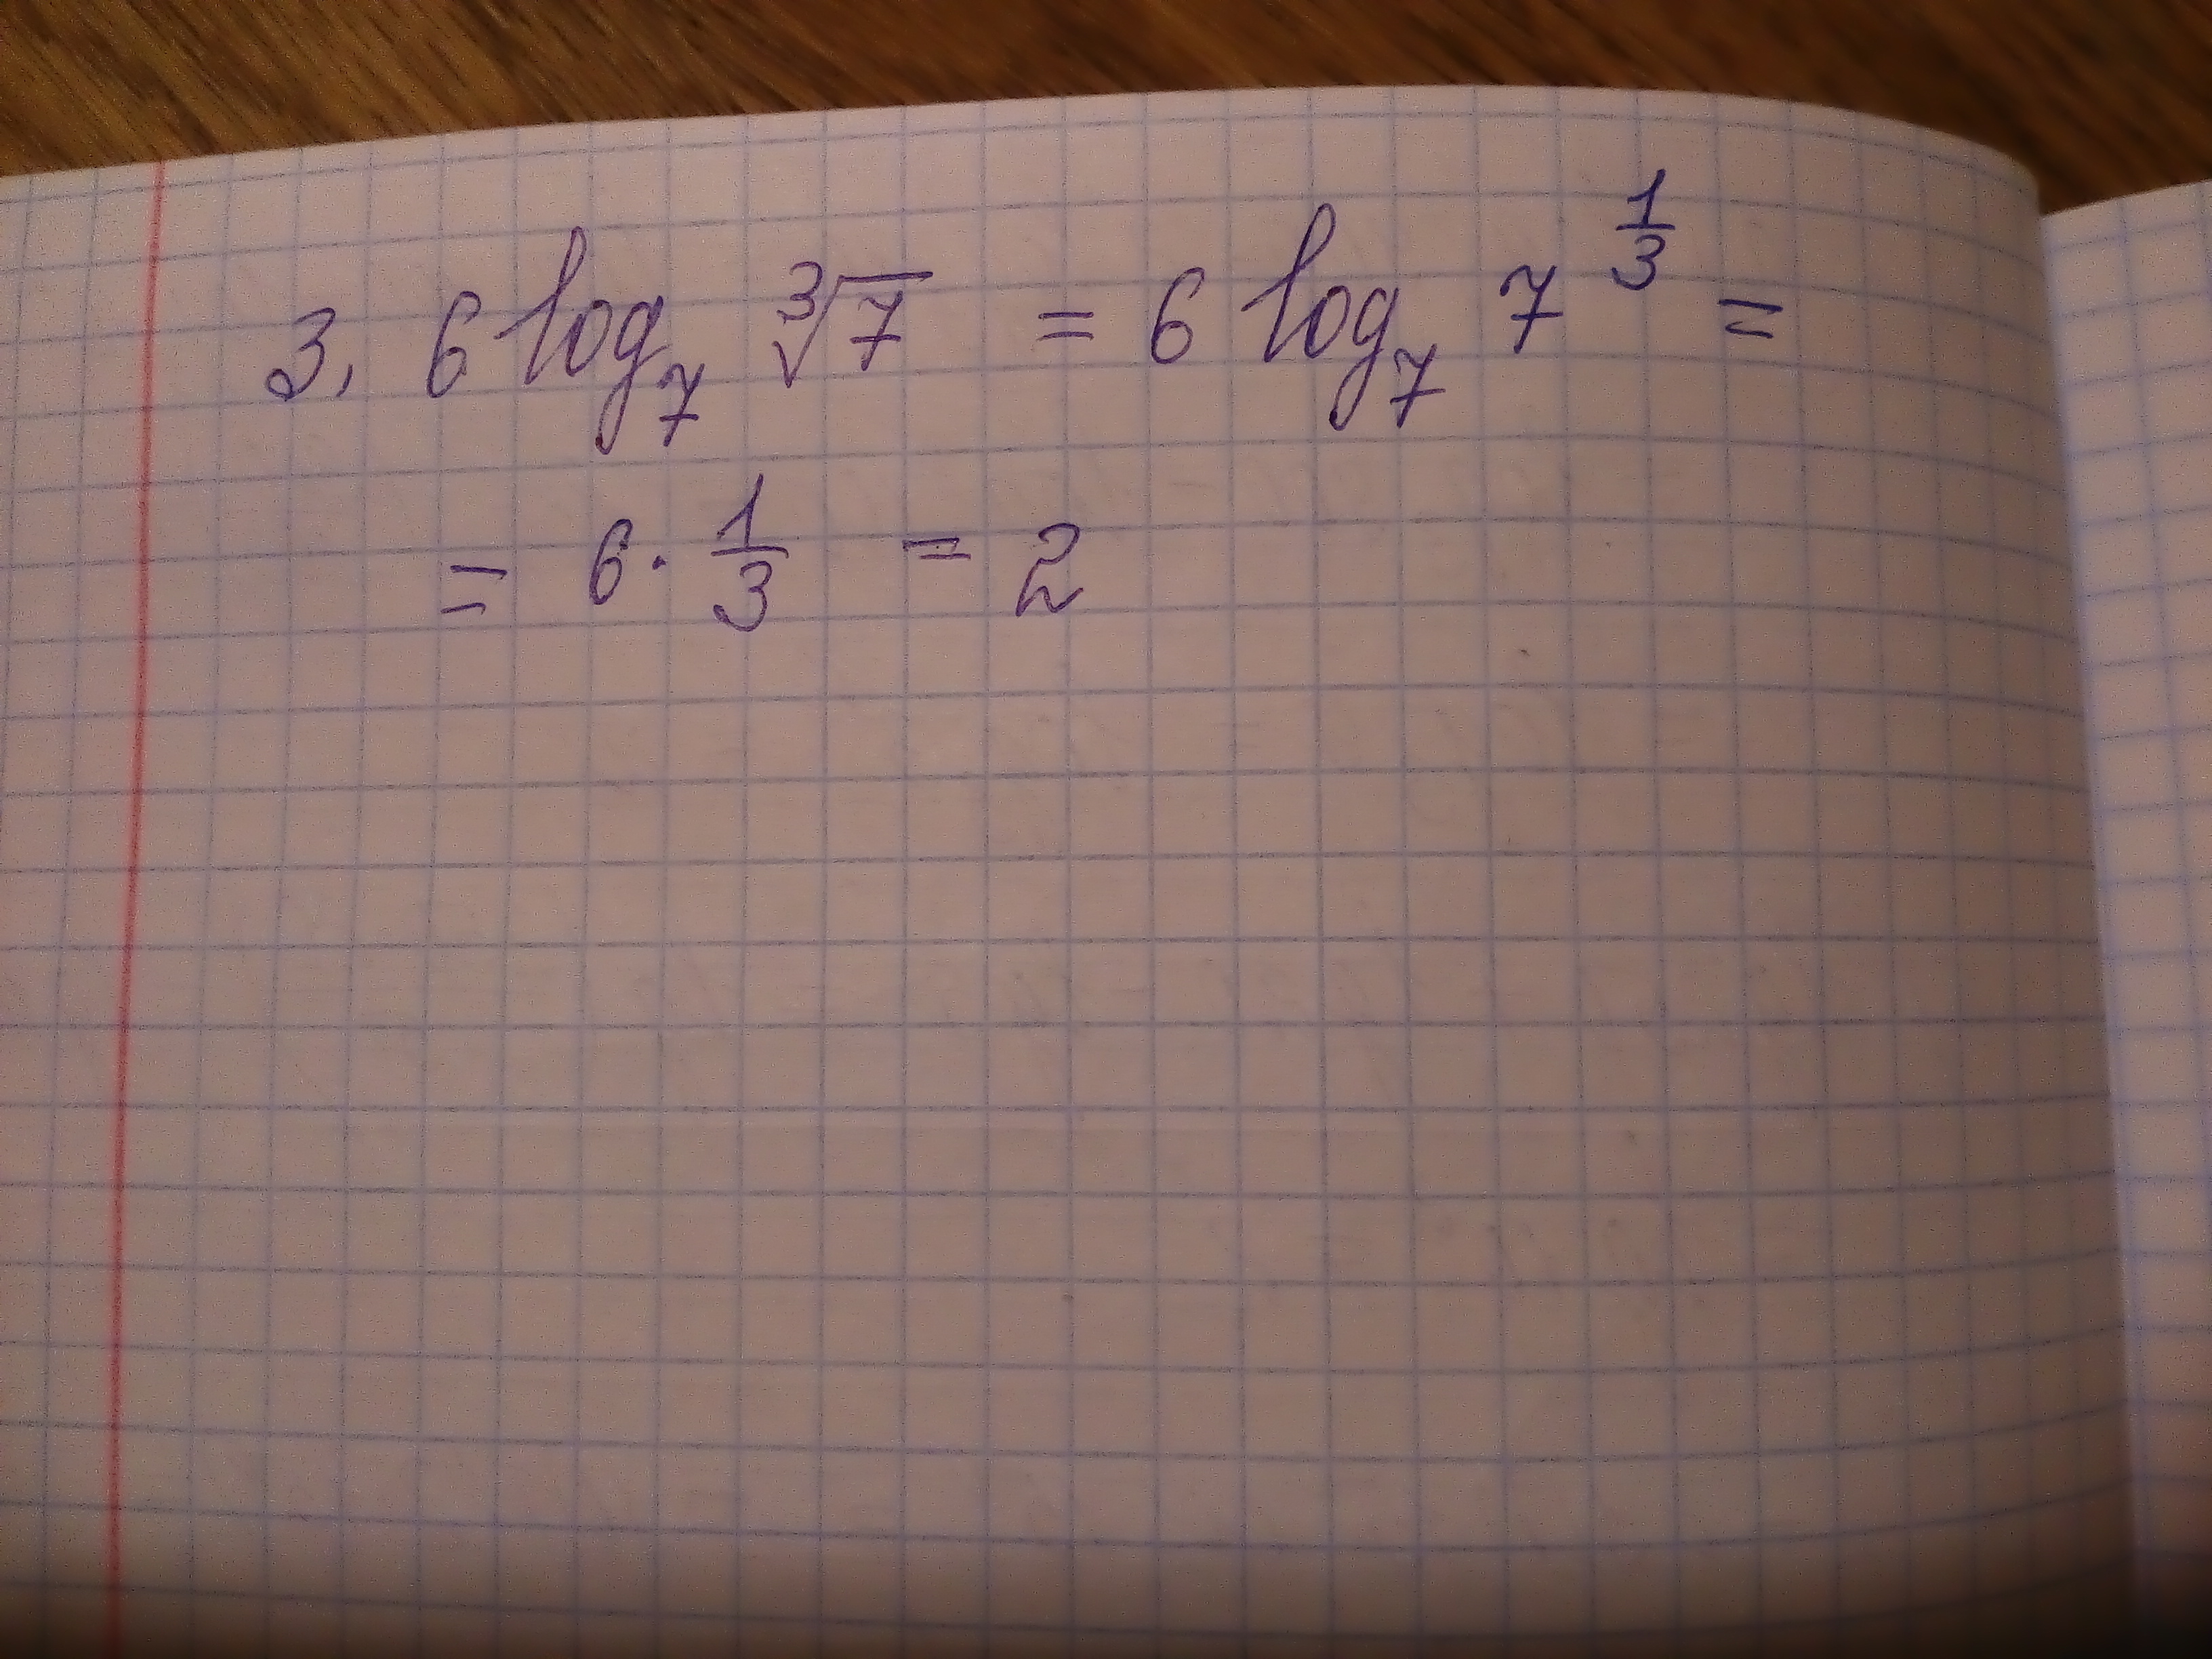 3, 6 log₇ ∛7 = 6 log₇ 7^(1/3) =
= 6 · 1/3 = 2